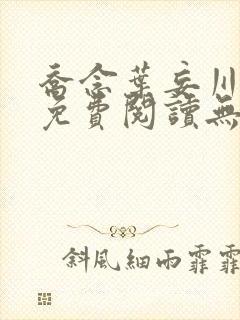 喬念葉妄川
免費閱讀無
斜風細雨霏霏